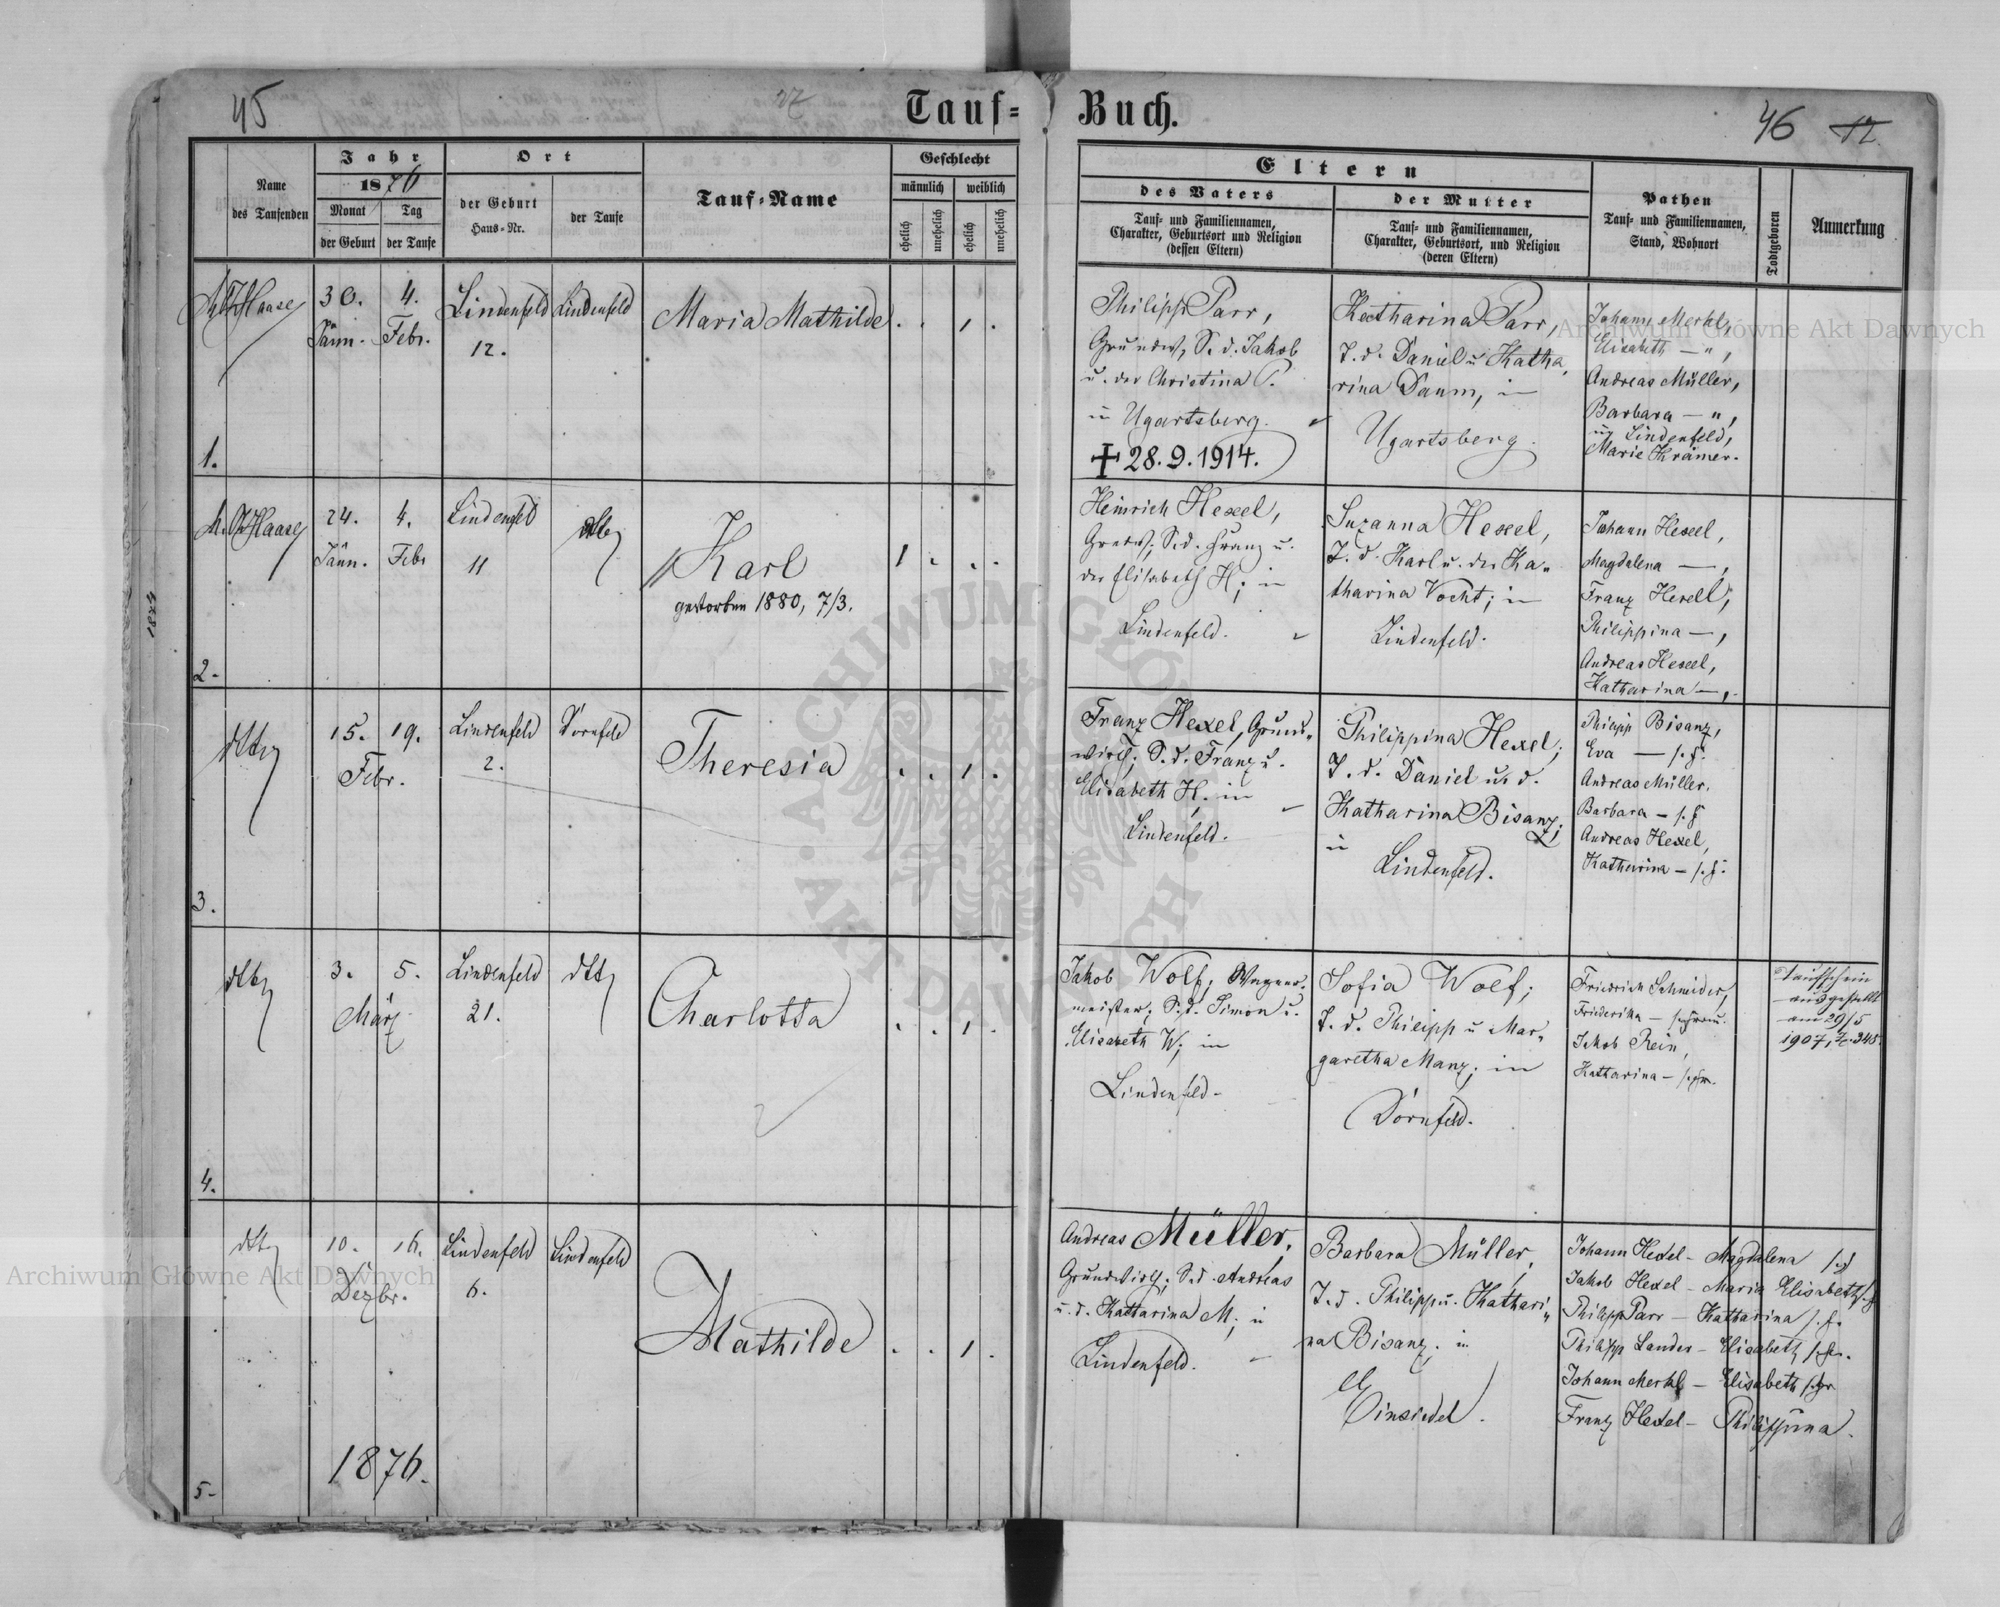 45
27
Tauf=
Buch.
46 12.
Name
des Taufenden
Jahr
1876
Monat
der Geburt
Tag
der Taufe
Ort
der Geburt
Haus=Nr.
der Taufe
Tauf=Name
Geschlecht
männlich
weiblich
ehelich
unehelich
ehelich
unehelich
Eltern
des Vaters
Tauf= und Familiennamen,
Charakter, Geburtsort und Religion
(dessen Eltern)
der Mutter
Tauf= und Familiennamen,
Charakter, Geburtsort, und Religion
(deren Eltern)
Pathen
Tauf= und Familiennamen,
Stand, Wohnort
Todtgeboren
Anmerkung
1.
Haase
30.
Jänn.
4.
Febr.
Lindenfeld
12.
Lindenfeld
Maria Mathilde
1
Philipp Parr,
Grundw, S. d. Jakob
u. der Christina P.
in Ugartsberg.
✝ 28.9.1914.
Katharina Parr,
T. d. Daniel u Katha,
rina Daum, in
Ugartsberg.
Johann Merkl,
Elisabeth — " ,
Andreas Müller,
Barbara — " ,
in Lindenfeld,
Marie Krämer.
2.
Haase
24.
Jänn.
4.
Febr
Lindenfeld
11
dtto
Karl
gestorben 1880, 7/3.
1
Heinrich Hexel,
Grundw; S. d. Franz u.
der Elisabeth H; in
Lindenfeld.
Suzanna Hexel,
T. d. Karl u. der Ka„
tharina Vocht; in
Lindenfeld.
Johann Hexel,
Magdalena —,
Franz Hexel,
Philippina —,
Andreas Hexel,
Katharina —,.
3.
dtto
15.
19.
Febr.
Lindenfeld
2.
Dornfeld
Theresia
1
Franz Hexel, Grund„
wirth; S. d. Franz u.
Elisabeth H. in
Lindenfeld.
Philippina Hexel;
T. d. Daniel u. d.
Katharina Bisanz;
in
Lindenfeld.
Philipp Bisanz,
Eva —
Andreas Müller.
Barbara —
Andreas Hexel,
Katharina —
4.
dtto
3.
5.
März
Lindenfeld
21.
dtto
Charlotta
1
Jakob Wolf; Wagner„
meister; S. d. Simon u.
Elisabeth W; in
Lindenfeld.
Sofia Wolf;
T. d. Philipp u Mar„
garetha Manz; in
Dornfeld.
Friedrich Schneider,
Friederika —
Jakob Rein,
Katharina —
Taufschein
ausgestellt
am 29/5
1907, Z. 345.
5.
dtto
10.
16.
Dezbr.
1876.
Lindenfeld
6.
Lindenfeld
Mathilde
1
Andreas Müller,
Grundwirth; S. d. Andreas
u. d. Katharina M; in
Lindenfeld.
Barbara Müller,
T. d. Philipp u. Kathari„
na Bisanz; in
Einsiedel.
Johann Hexel — Magdalena
Jakob Hexel — Maria Elisabeth
Philipp Parr — Katharina
Philipp Lander — Elisabeth
Johann Merkl — Elisabeth
Franz Hexel — Philippina.
1824
Archiwum Główne Akt Dawnych
Archiwum Główne Akt Dawnych
ARCHIWUM GŁÓWNE AKT DAWNYCH